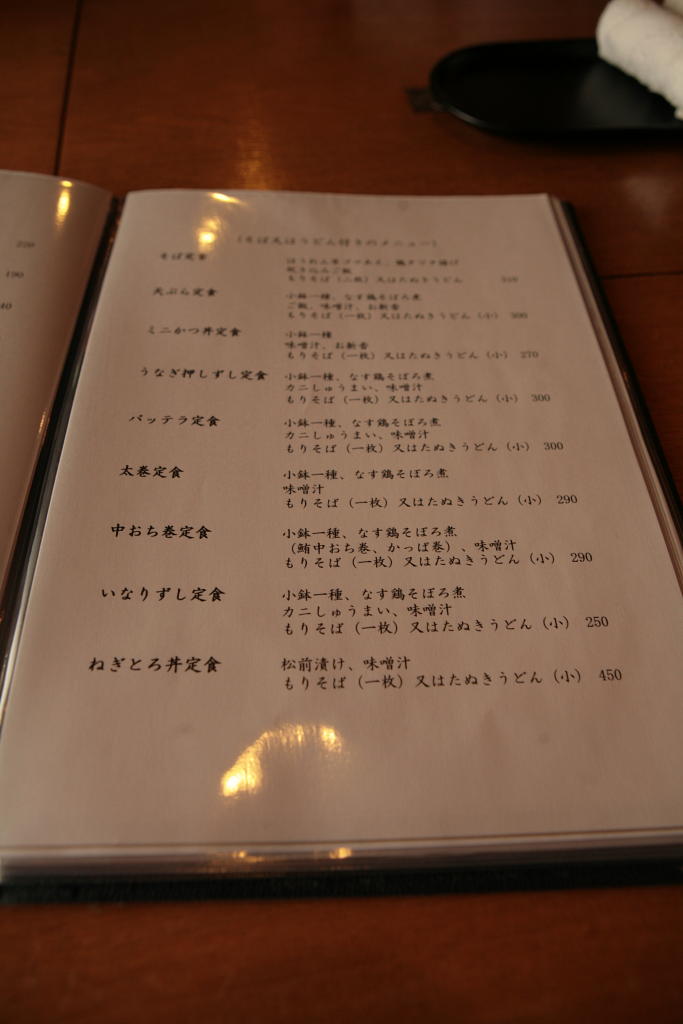 220
190
40
(そば又はうどん付きのメニュー)
そば定食
ほうれん草ゴマ和え、鶏タツタ揚げ
炊き込みご飯
もりそば(二枚)又はたぬきうどん
天ぷら定食
小鉢一種、なす鶏そぼろ煮
ご飯、味噌汁、お新香
もりそば(一枚)又はたぬきうどん(小) 300
ミニかつ丼定食
小鉢一種
味噌汁、お新香
もりそば(一枚)又はたぬきうどん(小) 270
うなぎ押しずし定食
小鉢一種、なす鶏そぼろ煮
カニしゅうまい、味噌汁
もりそば(一枚)又はたぬきうどん(小) 300
バッテラ定食
小鉢一種、なす鶏そぼろ煮
カニしゅうまい、味噌汁
もりそば(一枚)又はたぬきうどん(小) 300
太巻定食
小鉢一種、なす鶏そぼろ煮
味噌汁
もりそば(一枚)又はたぬきうどん(小) 290
中おち巻定食
小鉢一種、なす鶏そぼろ煮
(鮪中おち巻、かっぱ巻)、味噌汁
もりそば(一枚)又はたぬきうどん(小) 290
いなりずし定食
小鉢一種、なす鶏そぼろ煮
カニしゅうまい、味噌汁
もりそば(一枚)又はたぬきうどん(小) 250
ねぎとろ丼定食
松前漬け、味噌汁
もりそば(一枚)又はたぬきうどん(小) 450